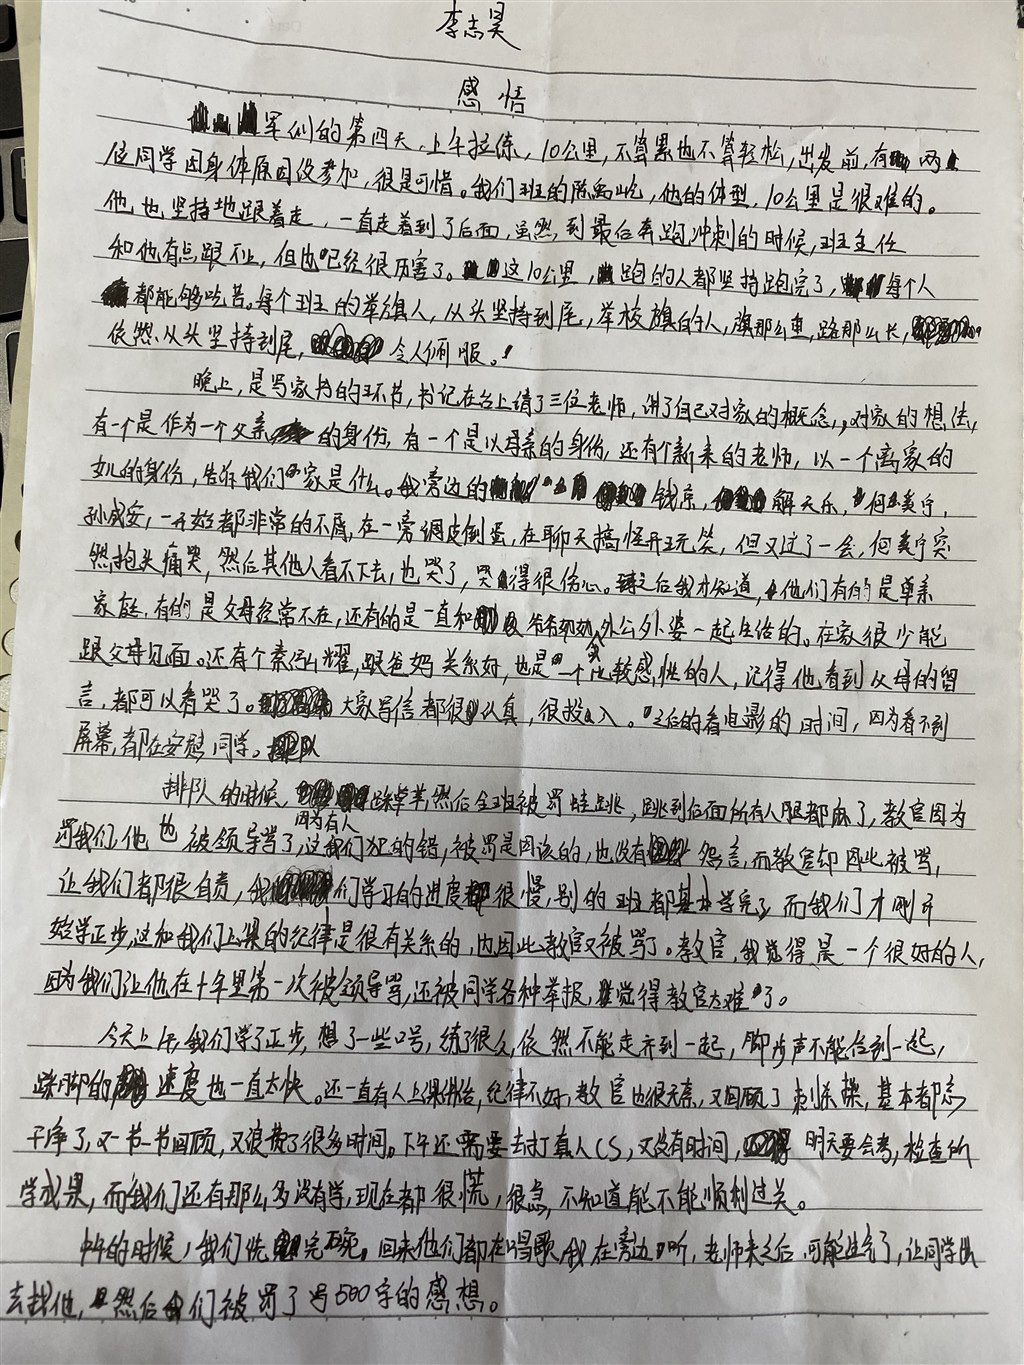 李志昊
感悟
军训的第四天，上午拉练，10公里，不算累也不算轻松，出发前，有两
位同学因身体原因没参加，很是可惜。我们班的陈禹屹，他的体型，10公里是很难的。
他也坚持地跟着走，一直走着到了后面，虽然，到最后奔跑冲刺的时候，班主任
和他有点跟不上，但也已经很厉害了。这10公里，跑的人都坚持跑完了，每个人
都能够吃苦。每个班的举旗人，从头坚持到尾，举校旗的人，旗那么重，路那么长，
依然从头坚持到尾，令人佩服。
晚上，是写家书的环节，书记在台上请了三位老师，讲了自己对家的概念，对家的想法，
有一个是作为一个父亲的身份，有一个是以母亲的身份，还有个新来的老师，以一个离家的
女儿的身份，告诉我们家是什么。我旁边的钱京，解天乐，何美宁，
孙成安，一开始都非常的不屑，在一旁调皮倒蛋，在聊天搞怪开玩笑，但又过了一会，何美宁突
然抱头痛哭，然后其他人看不下去，也哭了，哭得很伤心。之后我才知道，他们有的是单亲
家庭，有的是父母经常不在，还有的是一直和爷爷奶奶外公外婆一起生活的。在家很少能
跟父母见面。还有个秦运耀，跟爸妈关系好，也是一个比较感性的人，记得他看到父母的留
言，都可以看哭了。大家写信都很认真，很投入。之后的看电影的时间，因为看不到
屏幕，都在安慰同学。
排队的时候，因为有人踩草苹，然后全班被罚蛙跳，跳到后面所有人腿都麻了，教官因为
罚我们，他也被领导骂了，这我们犯的错，被罚是因该的，也没有怨言，而教官却因此被骂，
让我们都很自责，我们学习的进度都很慢，别的班都基本学完了，而我们才刚开
始学正步，这和我们上课的纪律是很有关系的，也因此教官又被骂了。教官，我觉得是一个很好的人，
因为我们让他在十年里第一次被领导骂，还被同学各种举报，觉得教官太难了。
今天上午，我们学了正步，想了一些口号，练了很久，依然不能走齐到一起，脚步声不能合到一起，
踩脚的速度也一直太快。还一直有人上课讲话，纪律不好，教官也很无奈，又回顾了刺杀操，基本都忘
干净了，又一节一节回顾，又浪费了很多时间。下午还需要去打真人CS，又没有时间，明天要会考，检查所
学成果，而我们还有那么多没有学，现在都很慌，很急，不知道能不能顺利过关。
中午的时候，我们洗完碗。回来他们都在唱歌，我在旁边听，老师来之后可能生气了，让同学出
去找他，然后我们被罚了写500字的感想。